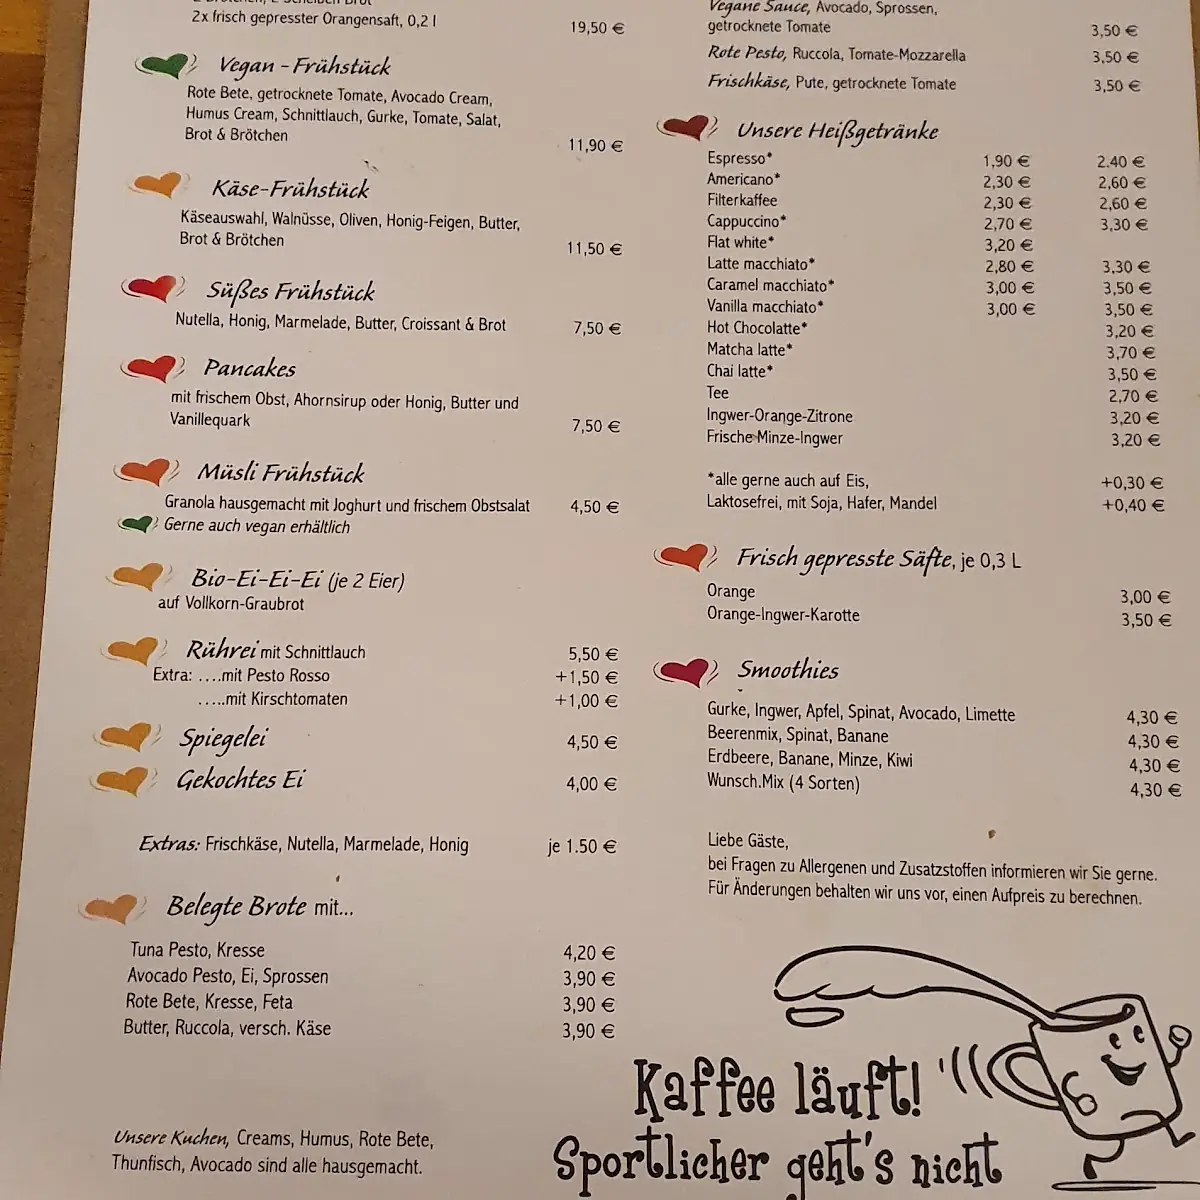 2x frisch gepresster Orangensaft, 0,2 l 19,50 €
Vegan - Frühstück
Rote Bete, getrocknete Tomate, Avocado Cream,
Humus Cream, Schnittlauch, Gurke, Tomate, Salat,
Brot & Brötchen 11,90 €
Käse-Frühstück
Käseauswahl, Walnüsse, Oliven, Honig-Feigen, Butter,
Brot & Brötchen 11,50 €
Süßes Frühstück
Nutella, Honig, Marmelade, Butter, Croissant & Brot 7,50 €
Pancakes
mit frischem Obst, Ahornsirup oder Honig, Butter und
Vanillequark 7,50 €
Müsli Frühstück
Granola hausgemacht mit Joghurt und frischem Obstsalat 4,50 €
Gerne auch vegan erhältlich
Bio-Ei-Ei-Ei (je 2 Eier)
auf Vollkorn-Graubrot
Rührei mit Schnittlauch 5,50 €
Extra: ....mit Pesto Rosso +1,50 €
.....mit Kirschtomaten +1,00 €
Spiegelei 4,50 €
Gekochtes Ei 4,00 €
Extras: Frischkäse, Nutella, Marmelade, Honig je 1.50 €
Belegte Brote mit...
Tuna Pesto, Kresse 4,20 €
Avocado Pesto, Ei, Sprossen 3,90 €
Rote Bete, Kresse, Feta 3,90 €
Butter, Ruccola, versch. Käse 3,90 €
Unsere Kuchen, Creams, Humus, Rote Bete,
Thunfisch, Avocado sind alle hausgemacht.
Vegane Sauce, Avocado, Sprossen,
getrocknete Tomate 3,50 €
Rote Pesto, Ruccola, Tomate-Mozzarella 3,50 €
Frischkäse, Pute, getrocknete Tomate 3,50 €
Unsere Heißgetränke
Espresso* 1,90 € 2.40 €
Americano* 2,30 € 2,60 €
Filterkaffee 2,30 € 2,60 €
Cappuccino* 2,70 € 3,30 €
Flat white* 3,20 €
Latte macchiato* 2,80 € 3,30 €
Caramel macchiato* 3,00 € 3,50 €
Vanilla macchiato* 3,00 € 3,50 €
Hot Chocolatte* 3,20 €
Matcha latte* 3,70 €
Chai latte* 3,50 €
Tee 2,70 €
Ingwer-Orange-Zitrone 3,20 €
Frische Minze-Ingwer 3,20 €
*alle gerne auch auf Eis, +0,30 €
Laktosefrei, mit Soja, Hafer, Mandel +0,40 €
Frisch gepresste Säfte, je 0,3 L
Orange 3,00 €
Orange-Ingwer-Karotte 3,50 €
Smoothies
Gurke, Ingwer, Apfel, Spinat, Avocado, Limette 4,30 €
Beerenmix, Spinat, Banane 4,30 €
Erdbeere, Banane, Minze, Kiwi 4,30 €
Wunsch.Mix (4 Sorten) 4,30 €
Liebe Gäste,
bei Fragen zu Allergenen und Zusatzstoffen informieren wir Sie gerne.
Für Änderungen behalten wir uns vor, einen Aufpreis zu berechnen.
Kaffee läuft!
Sportlicher geht's nicht